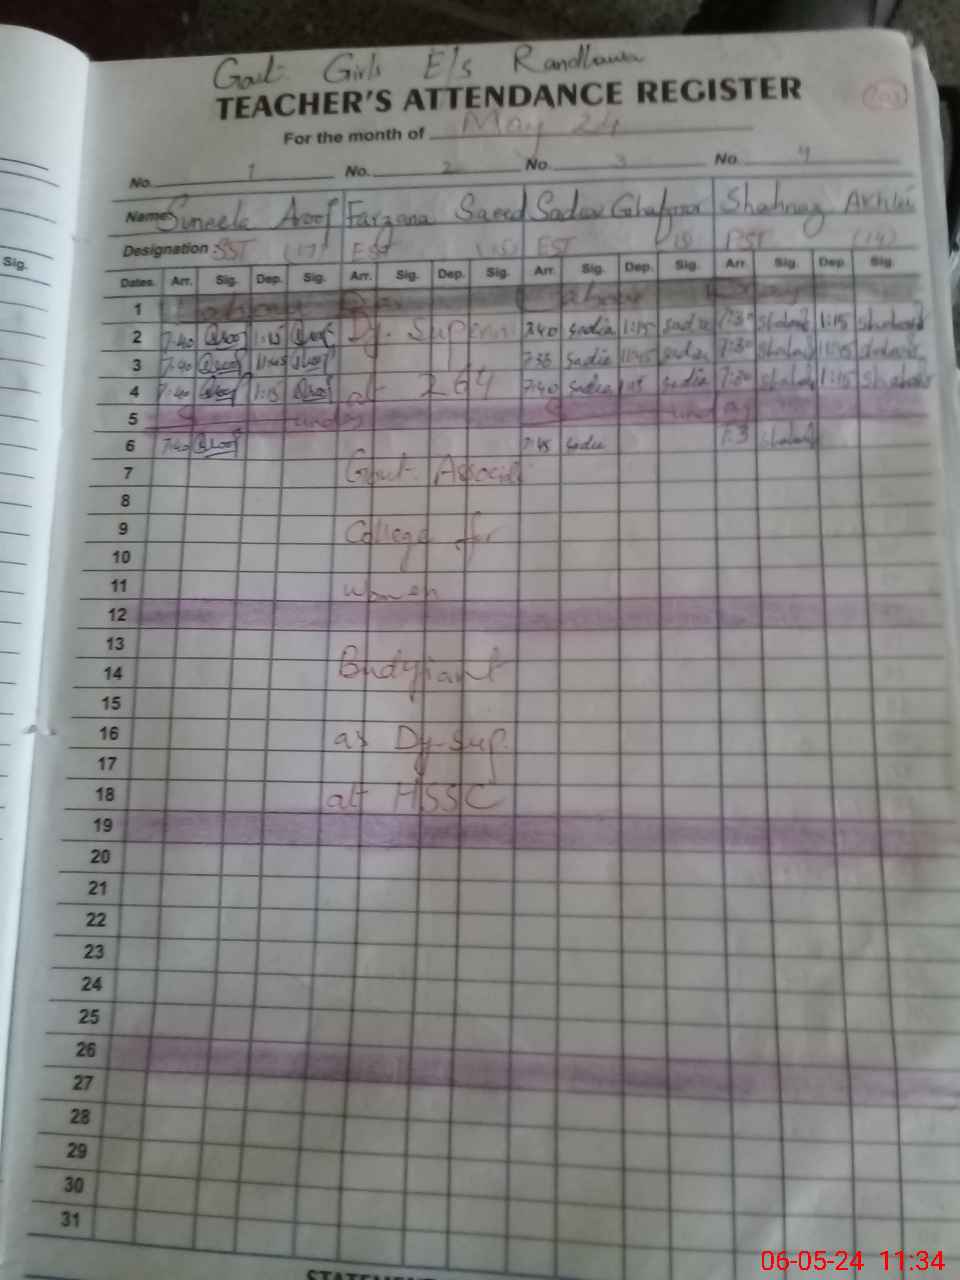 Govt: Girls E/S Randhawa
TEACHER'S ATTENDANCE REGISTER
For the month of May 24
No. 1 No. 2 No. 3 No. 4
Name Suneela Aroof Farzana Saeed Sadia Ghafoor Shahnaz Akhtar
Designation: SST (17) EST (15) EST (15) PST (14)
Sig.
Dates. Arr. Sig. Dep. Sig. Arr. Sig. Dep. Sig. Arr. Sig. Dep. Sig. Arr. Sig. Dep. Sig.
1 Labour Day Labour Day
2 7:40 Aroof 1:15 Aroof Dy. Suprin 7:40 sadia 1:15 sadia 7:30 Shahnaz 1:15 Shahnaz
3 7:40 Aroof 11:45 Aroof 7:35 sadia 11:45 sadia 7:30 Shahnaz 11:45 Shahnaz
4 7:40 Aroof 1:15 Aroof at 264 7:40 sadia 1:15 sadia 7:30 Shahnaz 1:15 Shahnaz
5 Sunday Sunday
6 7:40 Aroof 7:45 sadia 7:3 Shahnaz
7 Govt. Associ
8
9 College for
10
11 women
12
13
14
15
16 as Dy-Sup.
17
18 at HSSC
19
20
21
22
23
24
25
26
27
28
29
30
31
06-05-24 11:34